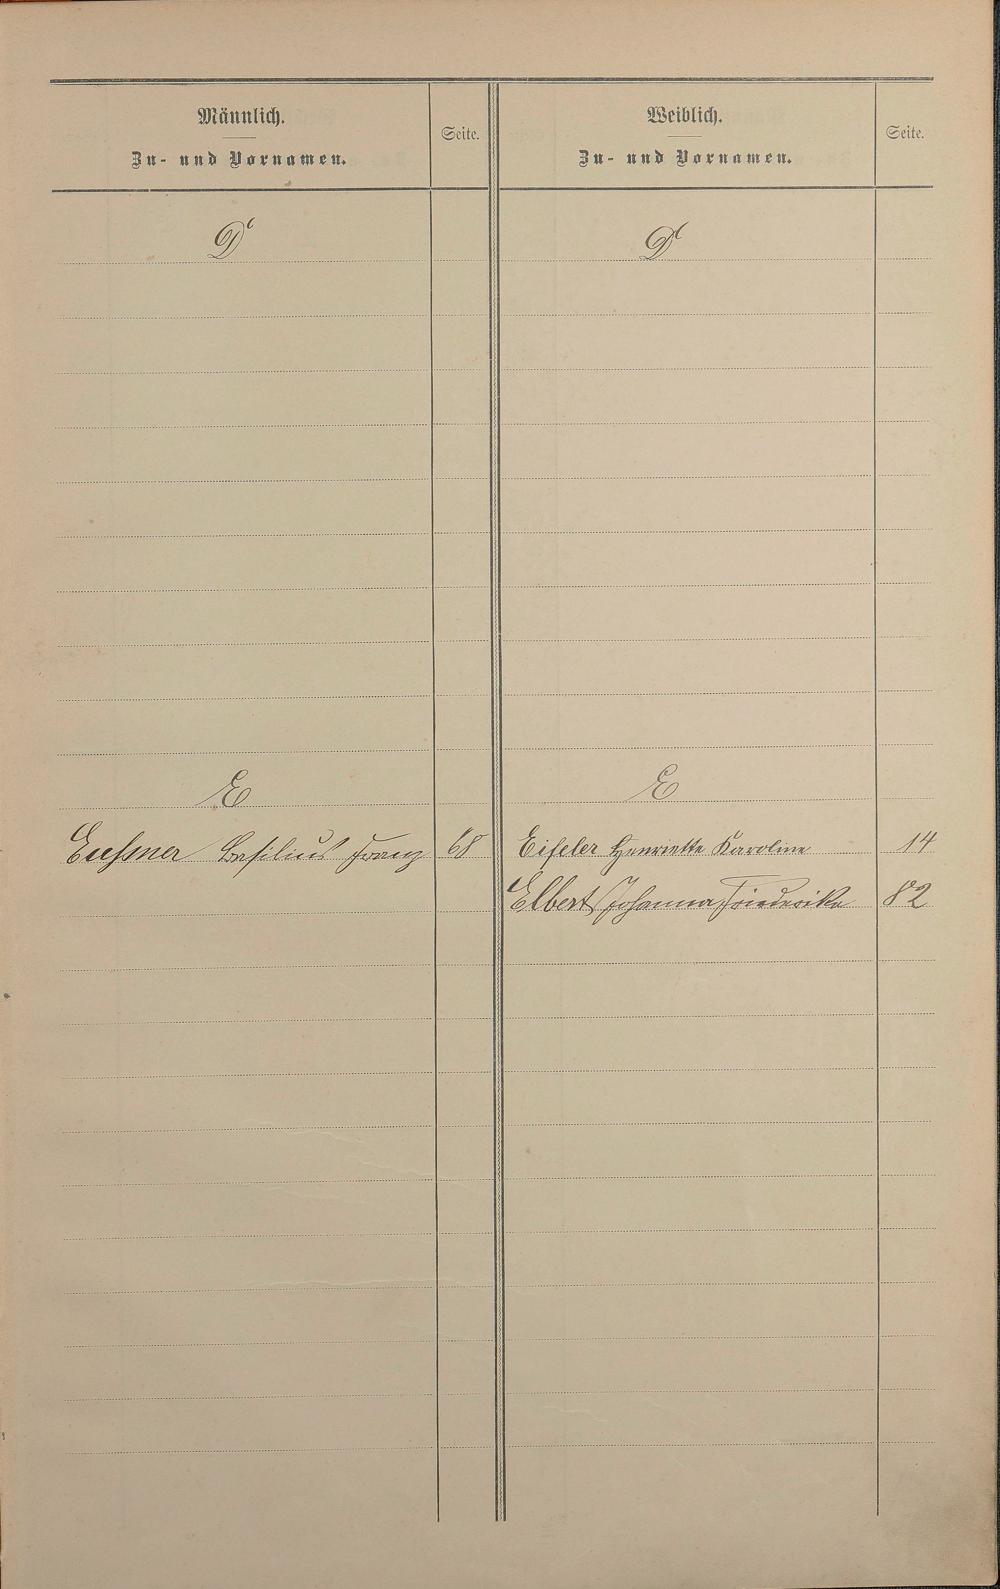 Männlich.
Zu- und Vornamen.
Seite.
Weiblich.
Zu- und Vornamen.
Seite.
D
D
E
E
Eußner Basilius Franz 68
Eifeler Henriette Karoline 14
Elbert Johanna Friederike 82